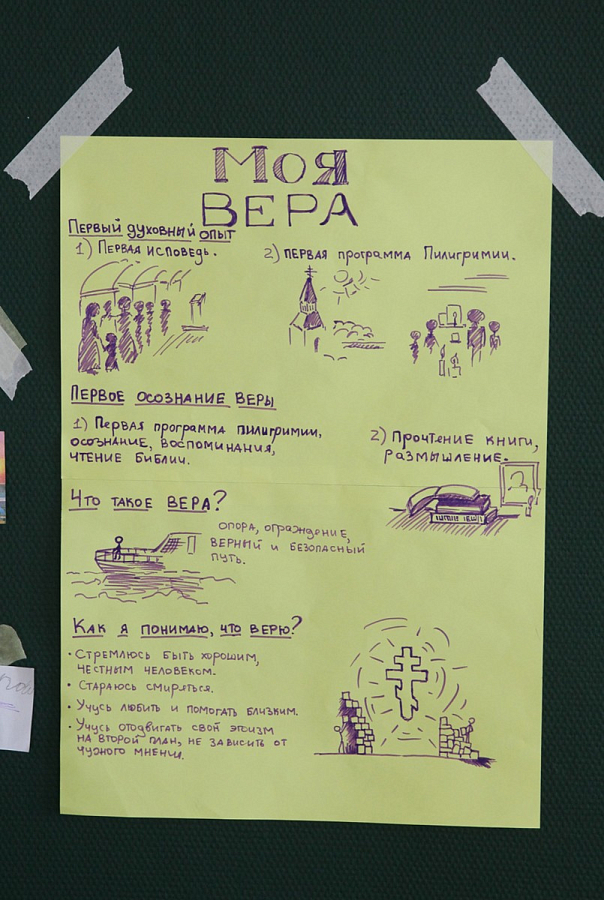 Моя
ВЕРА
Первый духовный опыт
1) Первая исповедь.
2) Первая программа Пилигримии.
Первое осознание веры
1) Первая программа пилигримии,
осознание, воспоминания,
чтение библии.
2) Прочтение книги,
размышление.
Что такое вера?
опора, ограждение,
верный и безопасный
путь.
Как я понимаю, что верю?
• Стремлюсь быть хорошим,
честным человеком.
• Стараюсь смиряться.
• Учусь любить и помогать близким.
• Учусь отодвигать свой эгоизм
на второй план, не зависить от
чужого мнения.